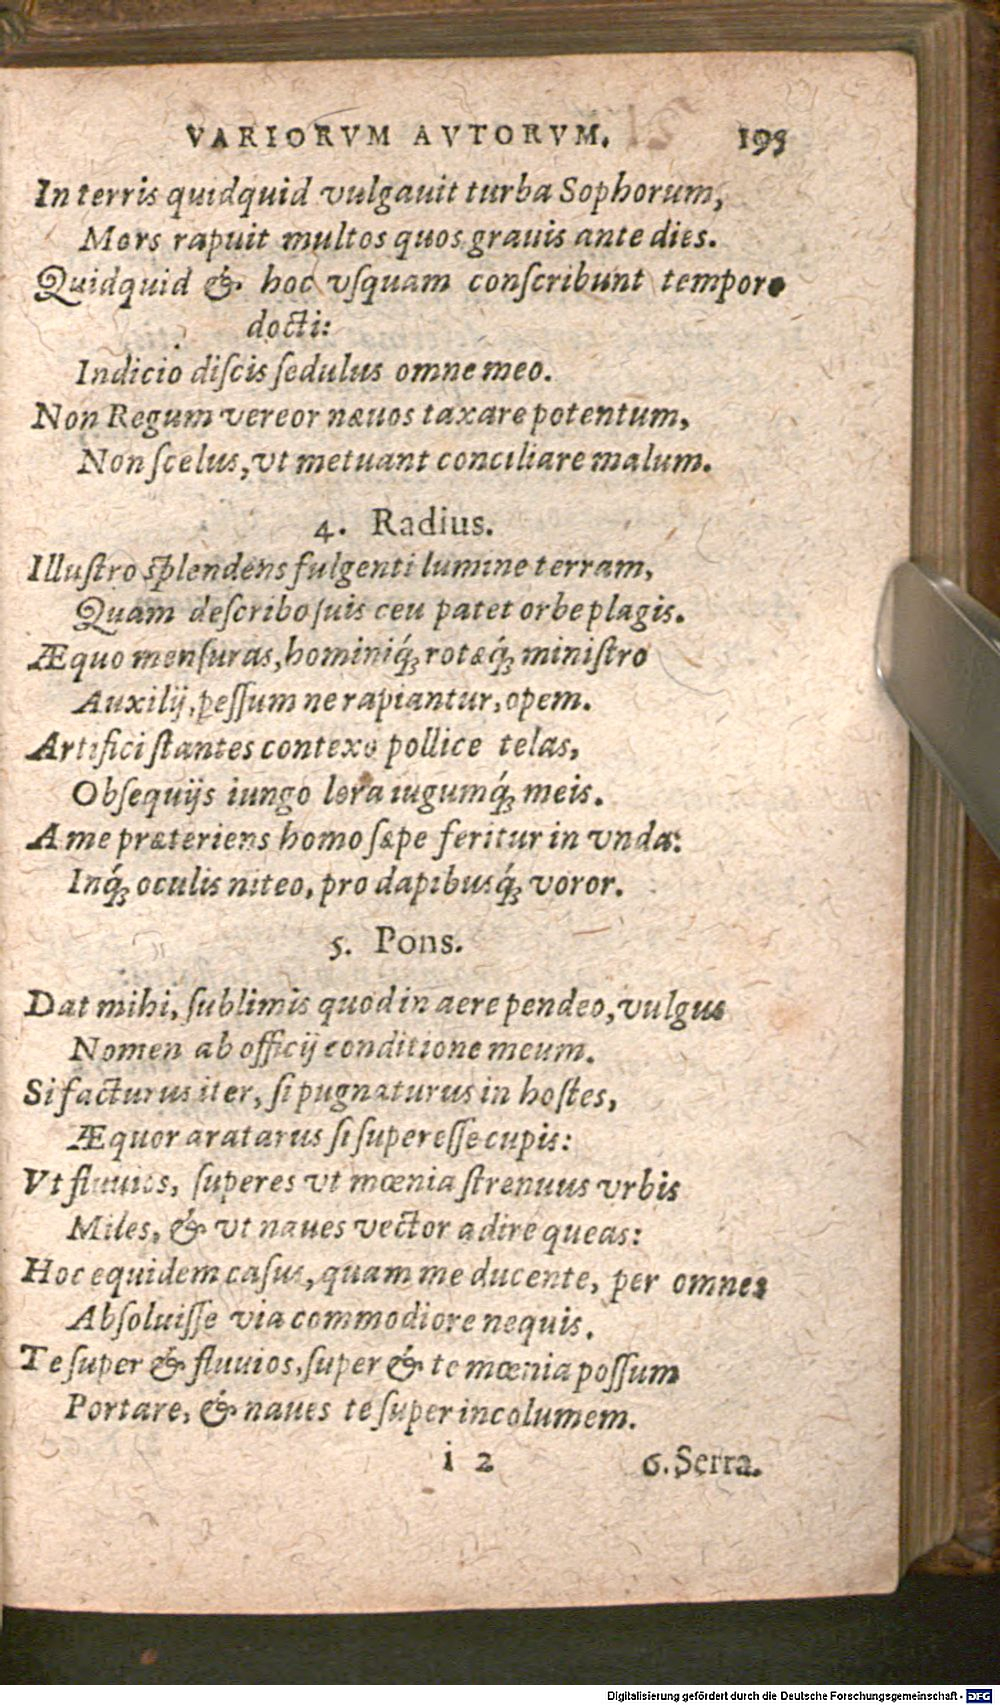 VARIORVM AVTORVM. 195
In terris quidquid vulgauit turba Sophorum,
Mors rapuit multos quos grauis ante dies.
Quidquid & hoc vſquam conſcribunt tempore
docti:
Indicio diſcis ſedulus omne meo.
Non Regum vereor næuos taxare potentum,
Non ſcelus, vt metuant conciliare malum.
4. Radius.
Illuſtro ſplendens fulgenti lumine terram,
Quam deſcribo ſuis ceu patet orbe plagis.
Æquo menſuras, hominiq́ꝫ rotæq́ꝫ miniſtro
Auxilij, peſſum ne rapiantur, opem.
Artifici ſtantes contexo pollice telas,
Obſequijs iungo lora iugumq́ꝫ meis.
A me præteriens homo ſæpe feritur in vnda:
Inq́ꝫ oculis niteo, pro dapibusq́ꝫ voror.
5. Pons.
Dat mihi, ſublimis quod in aere pendeo, vulgus
Nomen ab officij conditione meum.
Si facturus iter, ſi pugnaturus in hoſtes,
Æquor aratarus ſi ſupereſſe cupis:
Vt fluuios, ſuperes vt mœnia ſtrenuus vrbis
Miles, & vt naues vector adire queas:
Hoc equidem caſus, quam me ducente, per omnes
Abſoluiſſe via commodiore nequis.
Te ſuper & fluuios, ſuper & te mœnia poſſum
Portare, & naues te ſuper incolumem.
i 2 6. Serra.
Digitalisierung gefördert durch die Deutsche Forschungsgemeinschaft - DFG